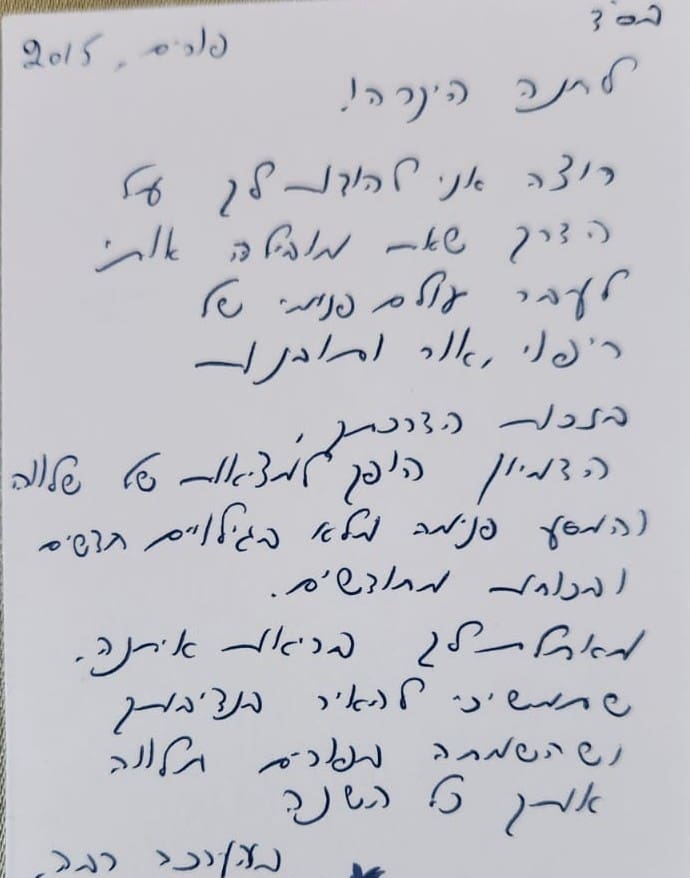 בס"ד
פורים, 2015
לחנה היקרה!
רוצה אני להודות לך על
הדרך שאת מובילה אותי
לעבר עולם פנימי של
ריפוי, אור ותובנות
בזכות הדרכתך,
הדמיון הופך למציאות של שלווה
והמסע פנימה מלא בגילויים חדשים
ובכוחות מחודשים.
מאחלת לך בריאות איתנה.
שתמשיכי להאיר בנדיבותך
ושהשמחה בפורים תלווה
אותך כל השנה
בהערכה רבה,